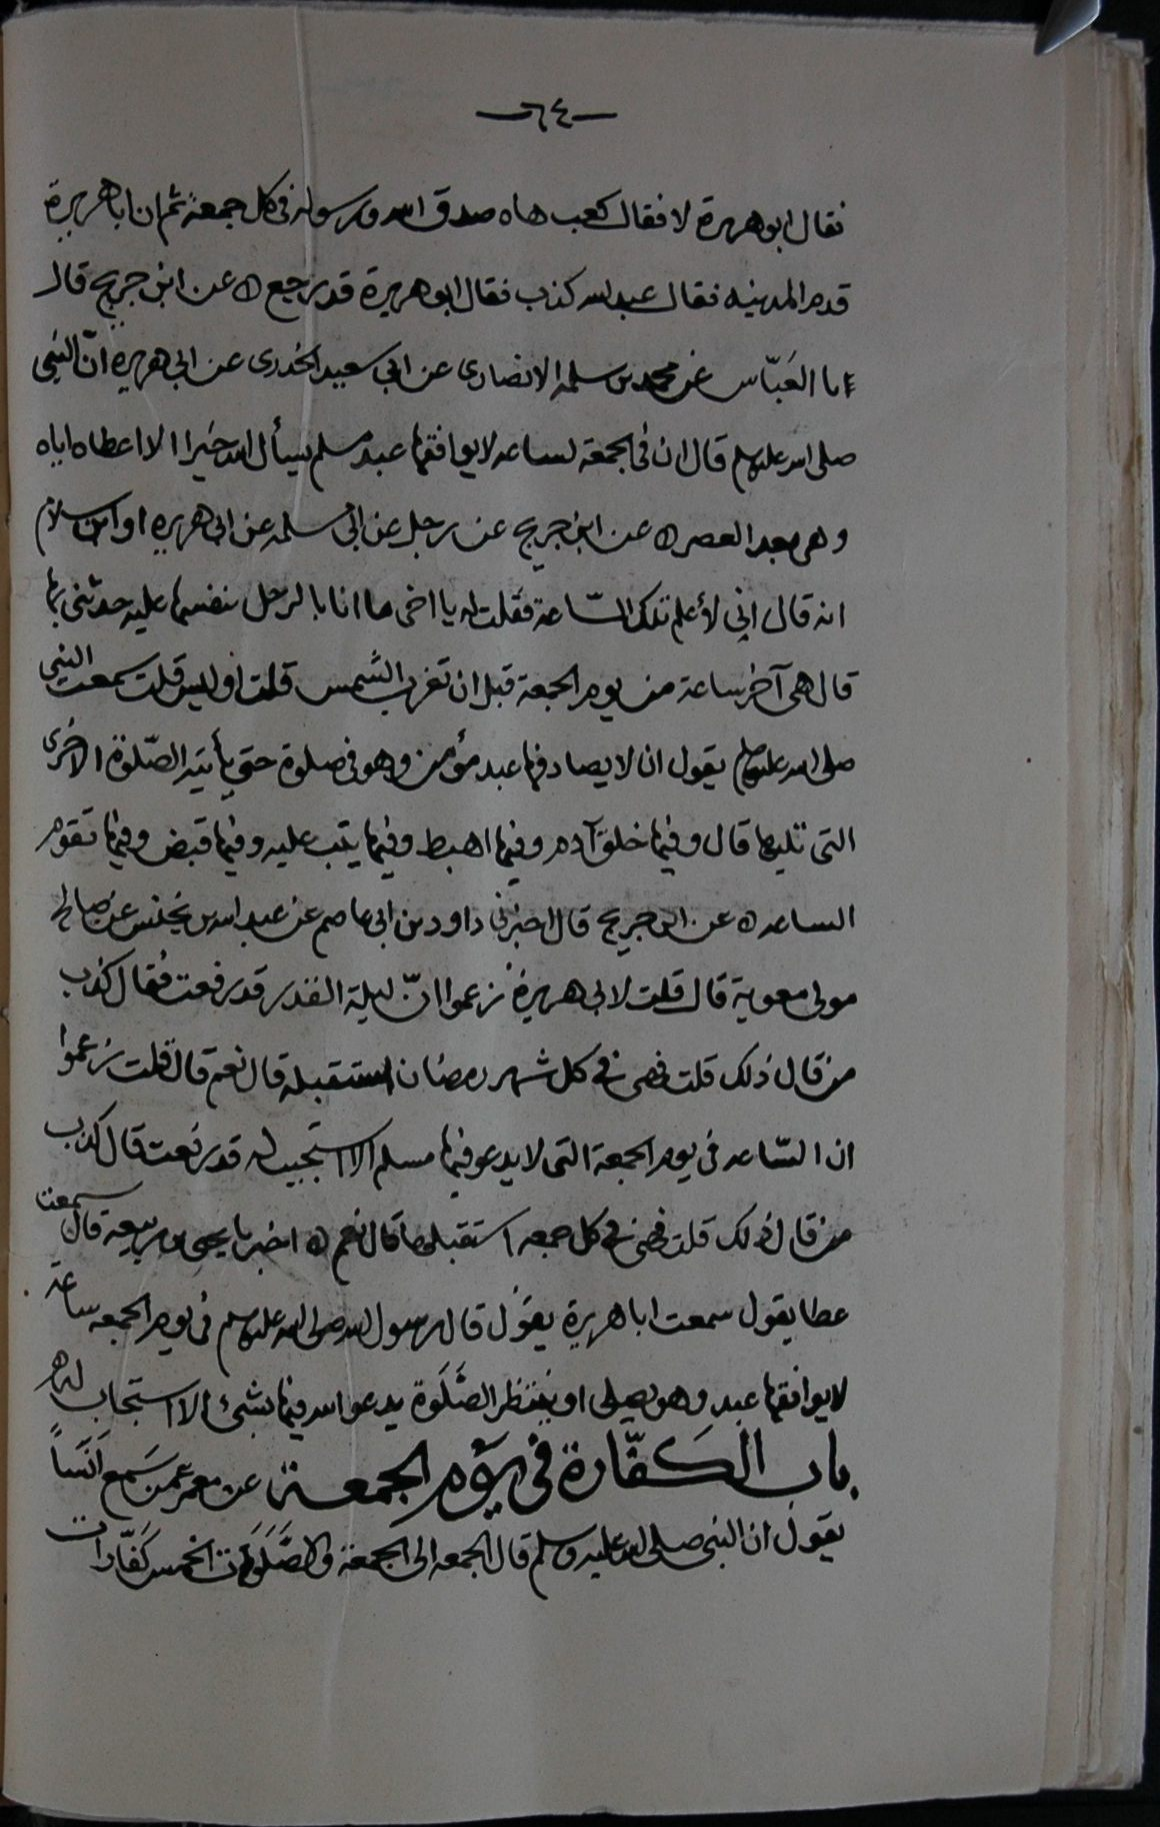 —٦٤—
فقال ابو هريرة لا فقال كعب هاه صدق الله ورسوله في كل جمعة ثم ان ابا هريرة
قدم المدينه فقال عبد الله كذب فقال ابو هريرة قد رجع ٥ عن ابن جريج قال
العَبّاس عن محمد بن سلمه الانصارى عن ابي سعيد الخدرى عن ابي هريره انّ النبي
صلى الله عليه وسلم قال ان في الجمعة لساعه لا يوافقها عبد مسلم يسأل الله خيرا الا اعطاه اياه
وهي بعد العصر ٥ عن ابن جريج عن رجل عن ابي سلمه عن ابي هريره او ابن سلام
انه قال اني لأعلم تلك السّاعة فقلت له يا اخى ما انا بالرجل ينفسها عليه حدثني بها
قال هي آخر ساعة من يوم الجمعة قبل ان تغرب الشمس قلت او ليس قلت سمعت النبي
صلى الله عليه وسلم يقول ان لا يصادفها عبد مؤمن وهو في صلوة حتى يأتيه الصّلوة الاخرى
التي تليها قال وفيها خلق آدم وفيها اهبط وفيها يتب عليه وفيها قبض وفيها تقوم
الساعه ٥ عن ابن جريج قال اخبرني داود بن ابي عاصم عن عبد الله بن يخنس عن صالح
مولى معوية قال قلت لابي هريرة زعموا انّ ليلة القدر قد رفعت فقال كذب
من قال ذلك قلت فهى في كل شهر رمضان استقبله قال نعم قال قلت زعموا
ان السّاعه في يوم الجمعة التي لا يدعو فيها مسلم الا استجيب له قد رفعت قال كذب
من قال ذلك قلت فهى في كل جمعه استقبلها قال نعم ٥ اخبرنا يحيى بن ربيعه قال سمعت
عطا يقول سمعت ابا هريرة يقول قال رسول الله صلى الله عليه وسلم في يوم الجمعه ساعة
لا يوافقها عبد وهو يصلى او ينتظر الصَّلَوة يدعو الله فيها بشئ الا استجاب له
باب الكَفّارة في يَوْم الجمعة عن معمر عمن سَمع اَنَساً
يقول ان النبي صلى الله عليه وسلم قال الجمعه الى الجمعة والصَّلَوَات الخمس كَفّارات